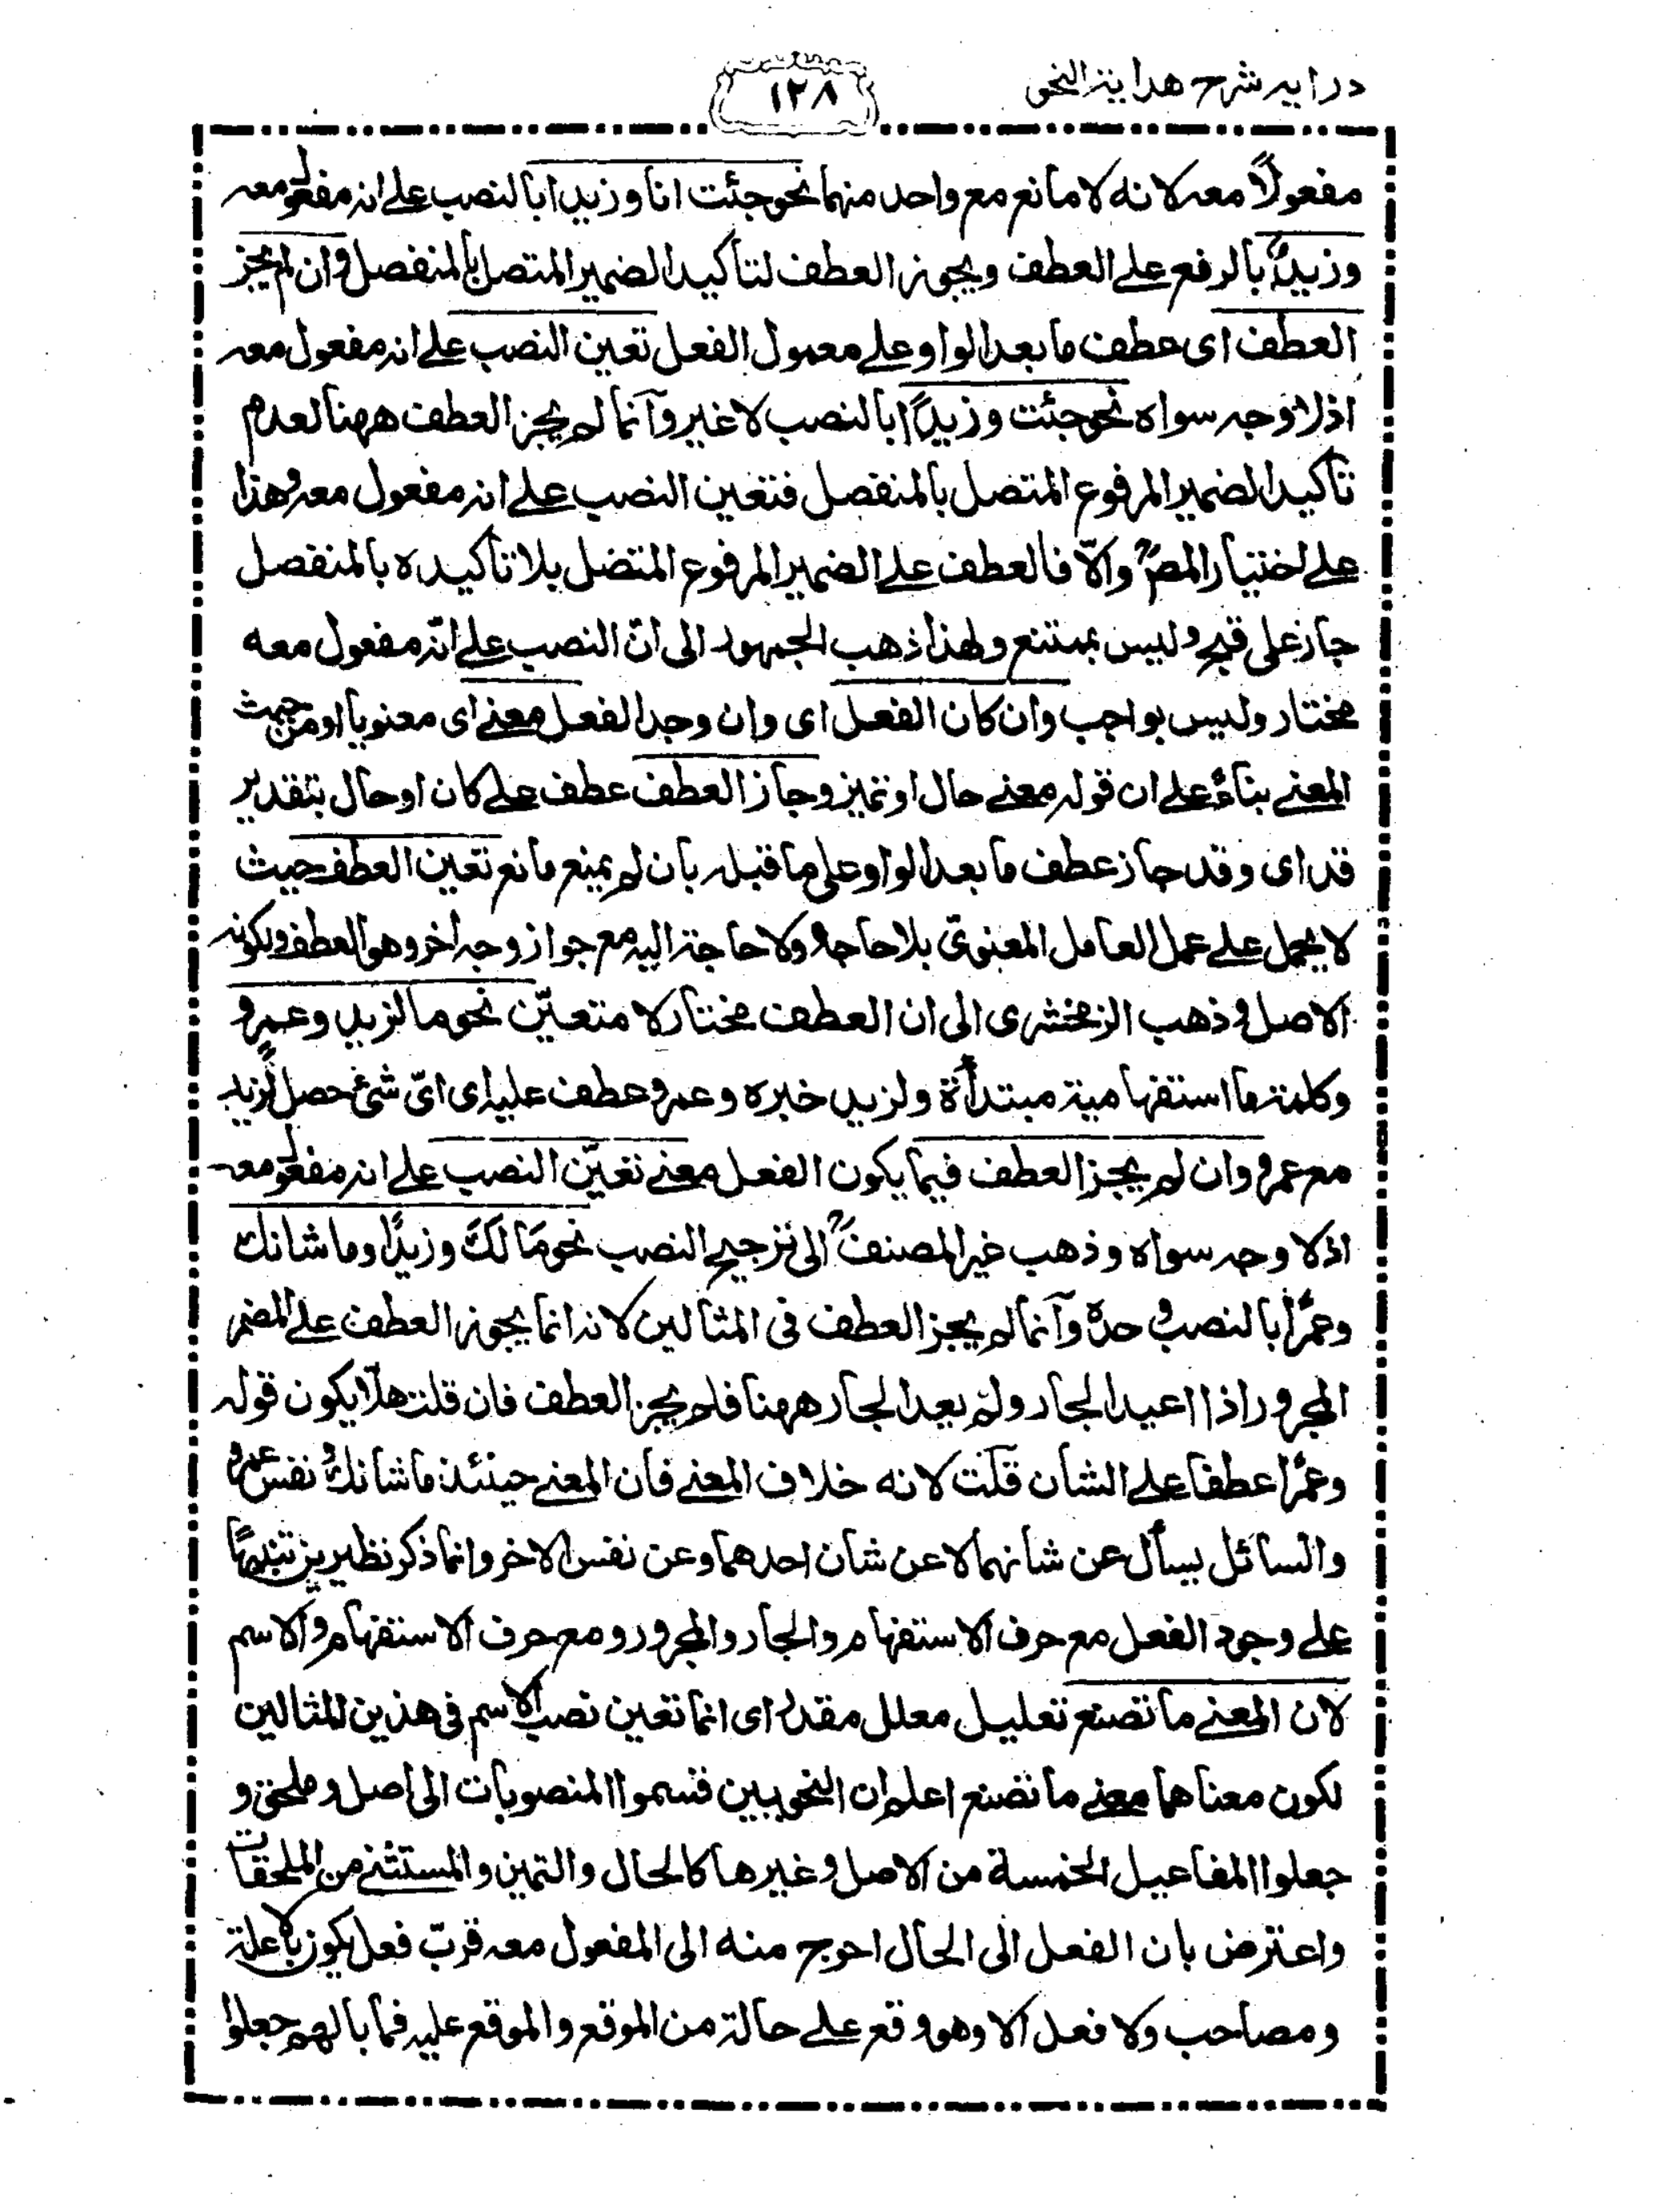 درايه شرح هداية النحو
١٢٨
مفعولاً معه لانه لا مانع مع واحد منهما نحو جئت انا وزيدا بالنصب على انه مفعول معه
وزيدٌ بالرفع على العطف ويجوز العطف لتاكيد الضمير المتصل بالمنفصل وان لم يجز
العطف اى عطف ما بعد الواو على معمول الفعل تعين النصب على انه مفعول معه
اذ لا وجه سواه نحو جئت وزيداً بالنصب لا غير وآنما لم يجز العطف ههنا لعدم
تأكيد الضمير المرفوع المتصل بالمنفصل فتعين النصب على انه مفعول معه وهذا
على اختيار المصؒ والّا فالعطف على الضمير المرفوع المتصل بلا تأكيده بالمنفصل
جاز على قبح وليس بممتنع ولهذا ذهب الجمهور الى انّ النصب على انّه مفعول معه
مختار وليس بواجب وان كان الفعل اى وان وجد الفعل معنى اى معنويا او من حيث
المعنى بناءً على ان قوله معنى حال او تميز وجاز العطف عطف على كان او حال بتقدير
قد اى وقد جاز عطف ما بعد الواو على ما قبله بان لم يمنع مانع تعين العطف حيث
لا يحمل على عمل العامل المعنوىّ بلا حاجة ولا حاجة اليه مع جواز وجه اخر وهو العطف ولكونه
الاصل وذهب الزمخشرى الى ان العطف مختار لا متعيّن نحو ما لزيد وعمرو
وكلمة ما استفهامية مبتدأة ولزيد خبره وعمرو عطف عليه اى اىّ شئ حصل لزيد
مع عمرو وان لم يجز العطف فيما يكون الفعل معنى تعيّن النصب على انه مفعول معه
اذ لا وجه سواه وذهب غير المصنفؒ الى ترجيح النصب نحو مَا لَكَ وزيدًا وما شانك
وعمرًا بالنصب وحده وآنما لم يجز العطف فى المثالين لانه انما يجوز العطف على المضمر
المجرور اذا اعيد الجار ولم يعد الجار ههنا فلم يجز العطف فان قلت هلّا يكون قوله
وعمرًا عطفا على الشان قلت لانه خلاف المعنى فان المعنى حينئذ ما شانك ونفس عمرو
والسائل يسأل عن شانهما لا عن شان احدهما وعن نفس الاخر وانما ذكر نظيرين تنبيهًا
على وجود الفعل مع حرف الاستفهام والجار والمجرور ومع حرف الاستفهام والاسم
لان المعنى ما تصنع تعليل معلل مقدر اى انما تعين نصب الاسم فى هذين المثالين
لكون معناهما معنى ما تصنع اعلم ان النحويين قسموا المنصوبات الى اصل وملحق و
جعلوا المفاعيل الخمسة من الاصل وغيرها كالحال والتميز والمستثنى من الملحقات
واعترض بان الفعل الى الحال احوج منه الى المفعول معه فربّ فعل يكون بلا علة
ومصاحب ولا فعل الا وهو وقع على حالة من الموقع والموقع عليه فما بالهم جعلوا